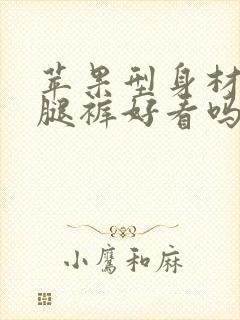 苹果型身材
腿裤好看吗
小鹰和麻